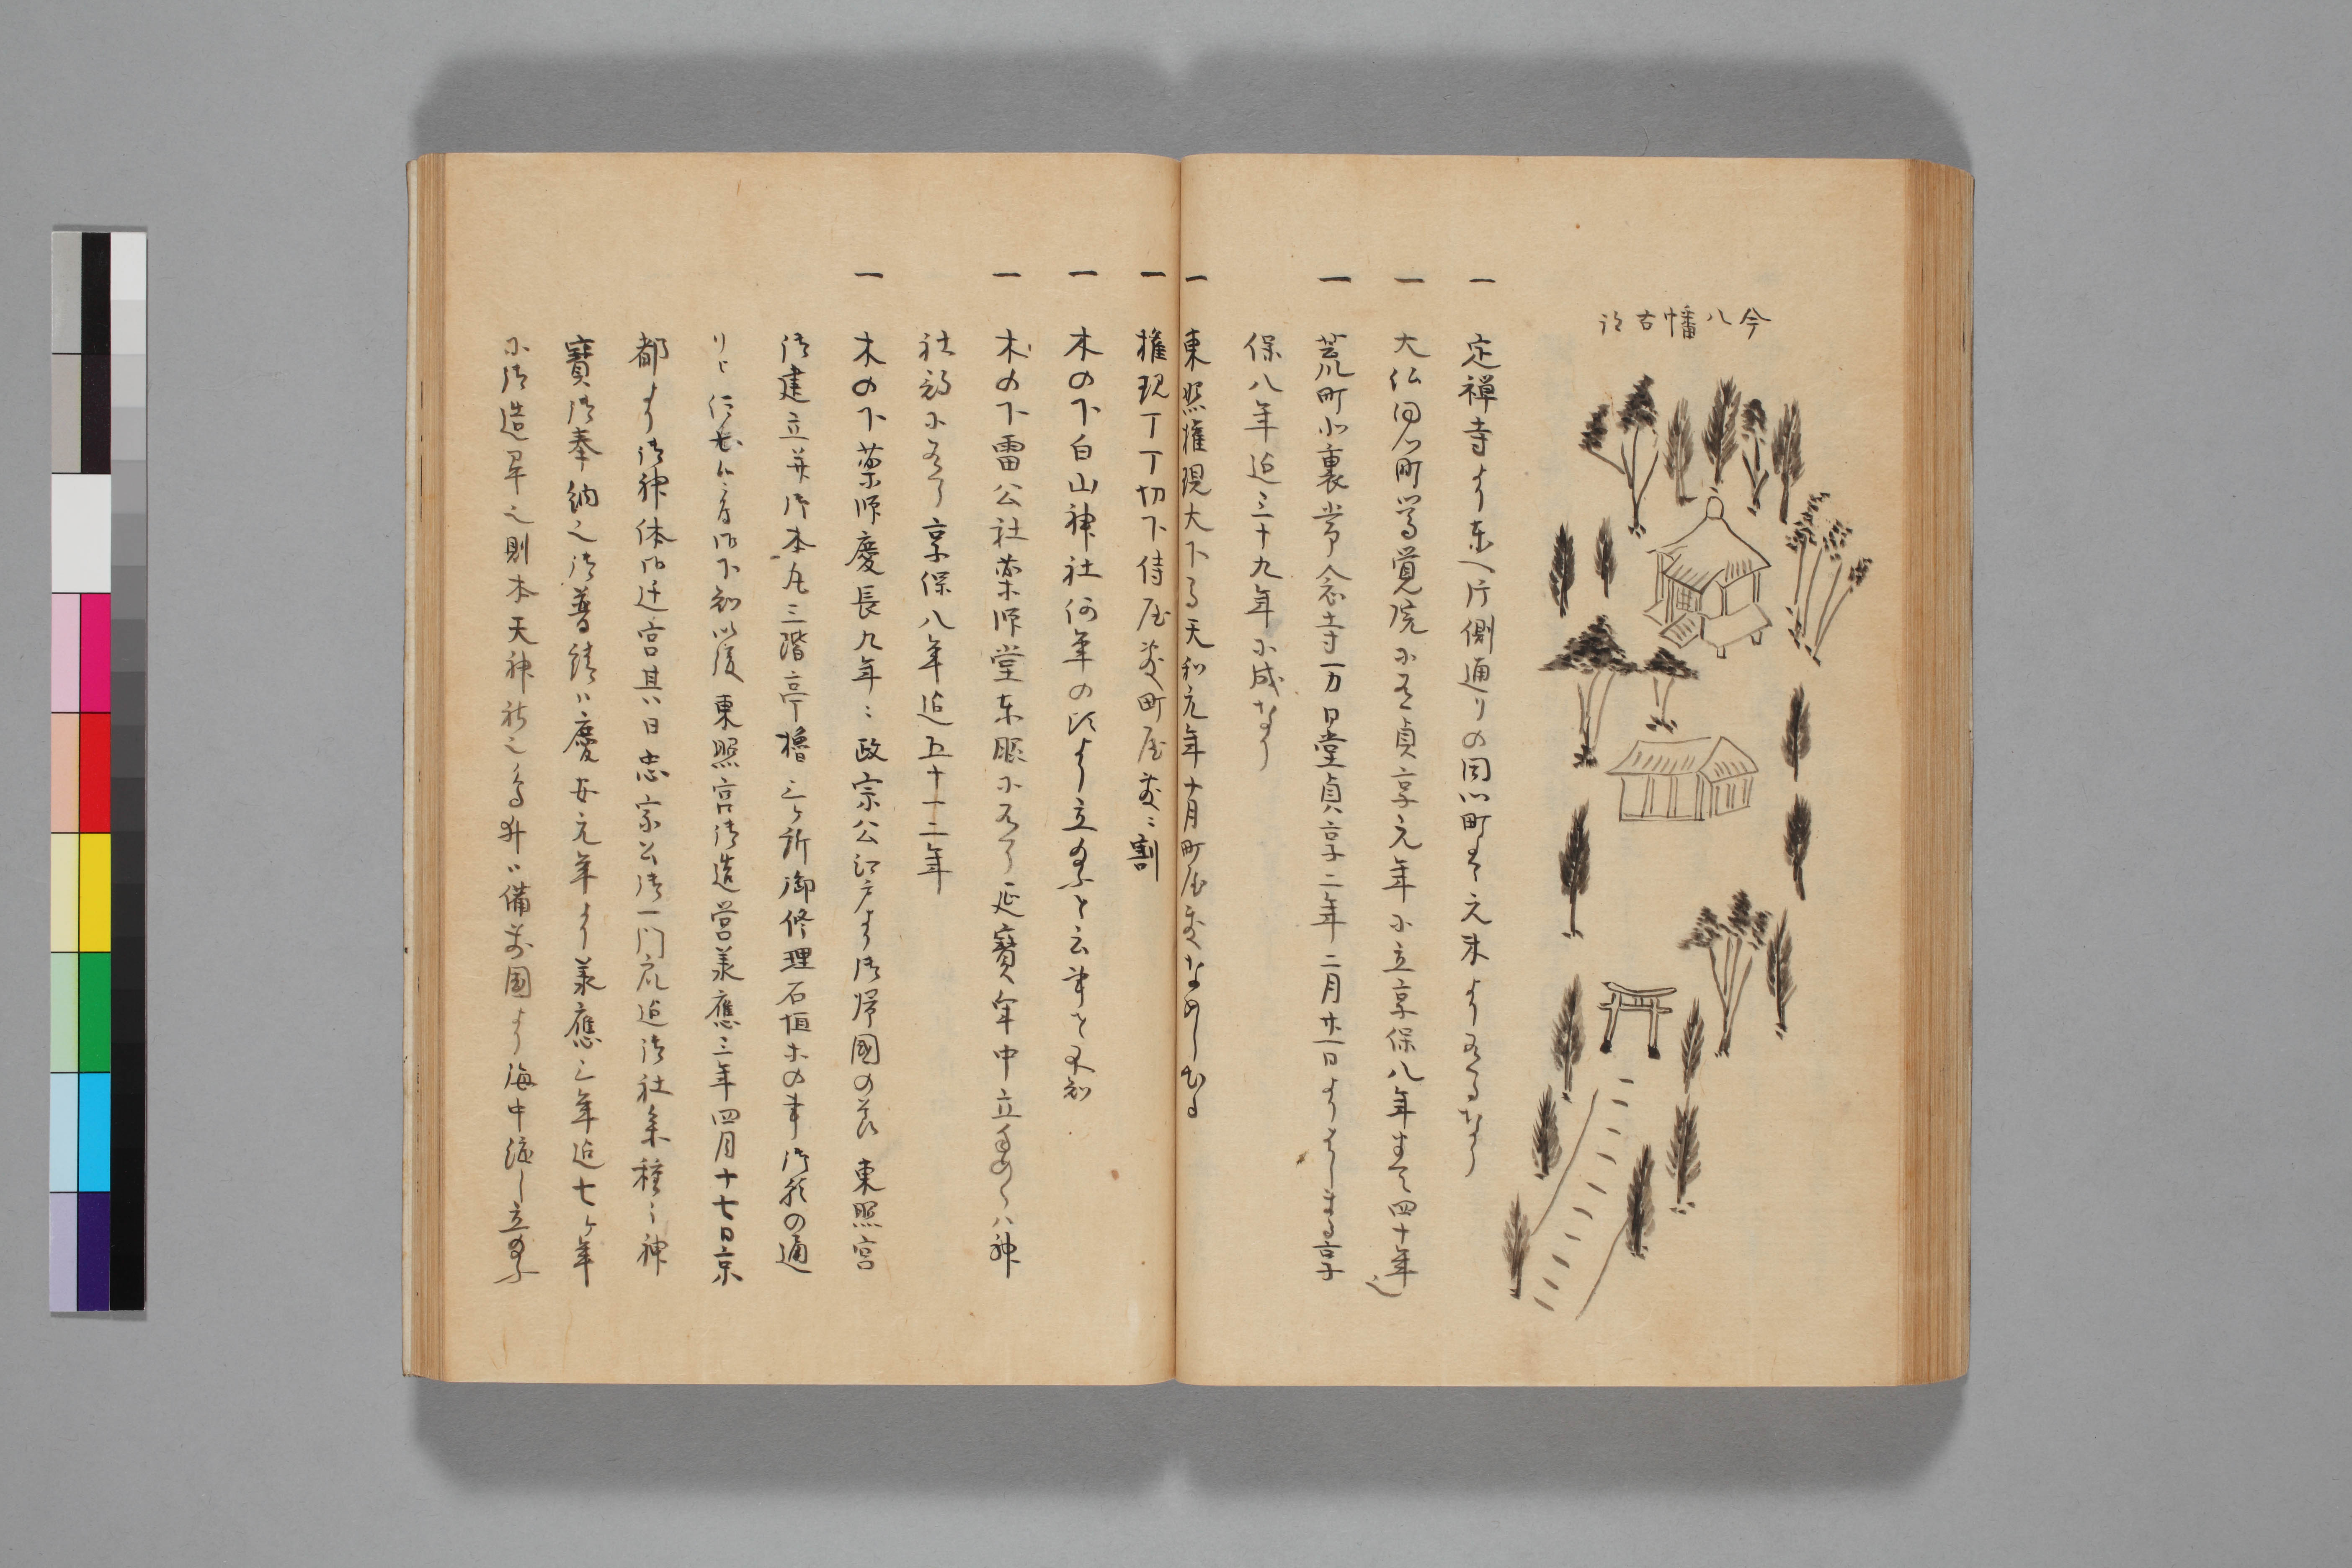 今八幡古跡
一 定禅寺より東へ片側通りの同心町は元来より有るなり
一 大仏同心町覚院に有貞享元年に立享保八年まて四十年
一 荒町小裏常念寺一万日堂貞享二年二月廿一日よりはしまる享
保八年迄三十九年に成なり
一 東照権現大下る天和元年十月町屋敷なめしむる
一 権現丁丁切下侍屋敷町屋敷ニ割
一 木の下白山神社何年の頃より立給ふと云事を不知
一 木の下雷公社薬師堂東脇に有り延寳年中立八神
社初に有り享保八年迄五十一二年
一 木の下薬師慶長九年ニ政宗公江戸より御帰國の節東照宮
御建立并御本丸三階亭櫓三ヶ所御修理石垣木の事御願の通
以後東照宮御造営義應三年四月十七日京
都より御神体御迁宮其日忠宗公御一門衆迄御社参種々神
寳御奉納之御普請ハ慶安元年より義應三年迄七ヶ年
に御造畢之則本天神社之備前国より海中流し立給ふ